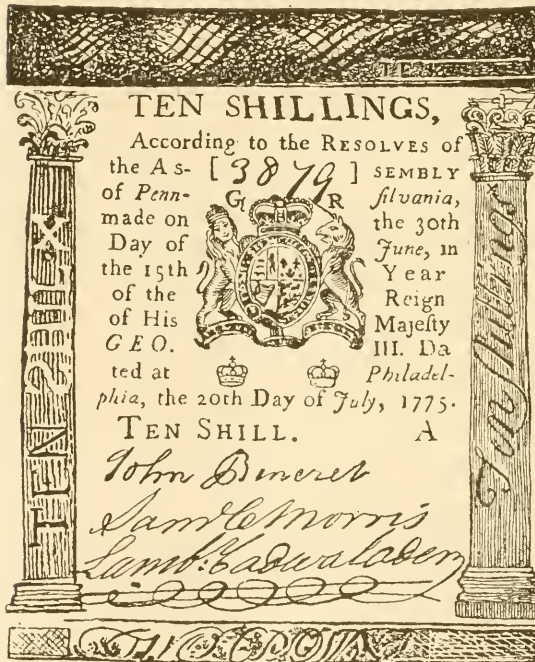 TEN SHILLINGS,
According to the RESOLVES of
the As- [3879] SEMBLY
of Penn- G R ſilvania,
made on the 30th
Day of June, in
the 15th Year
of the Reign
of His Majeſty
GEO. III. Da
ted at Philadel-
phia, the 20th Day of July, 1775.
TEN SHILL. A
John
Saml C Morris
Lamb: Cadwalader
TEN
Ten ſhillings